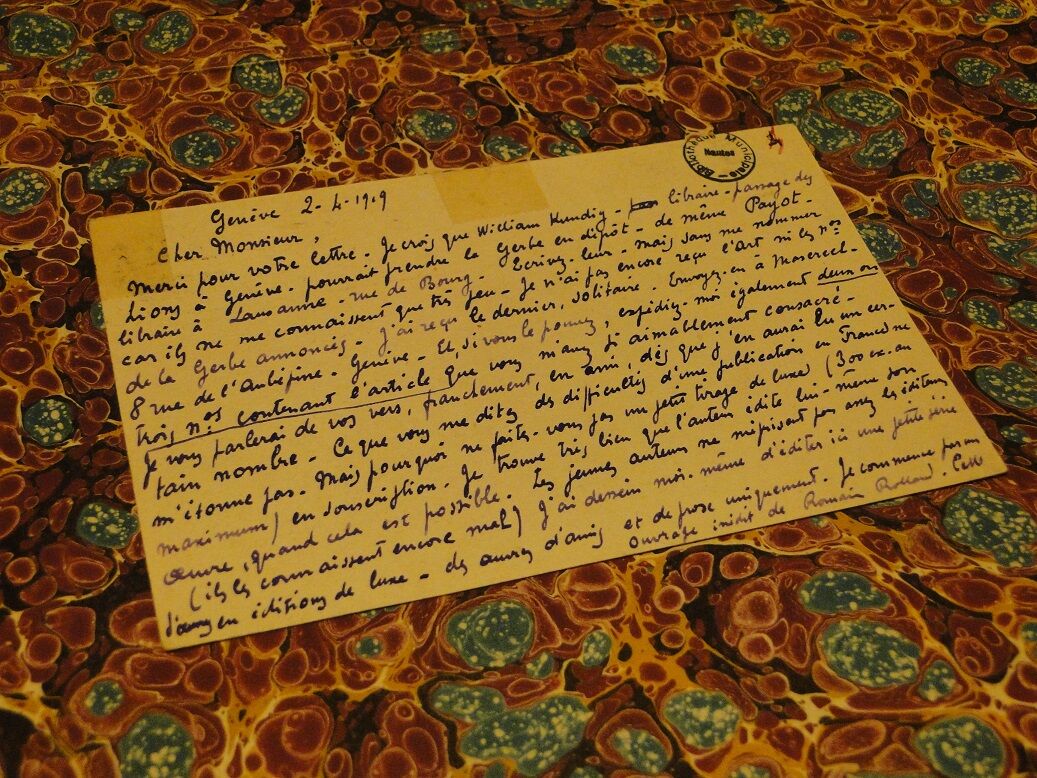 Bibliothèque Municipale
Nantes
Genève 2-4-1919
Cher Monsieur,
Merci pour votre lettre. Je crois que William Kundig - libraire - passage des
Lions à Genève - pourrait prendre la Gerbe en dépôt - de même Payot -
libraire à Lausanne - rue de Bourg. Ecrivez-leur - mais sans me nommer
car ils ne me connaissent que très peu - Je n'ai pas encore reçu l'art ni les nos
de la Gerbe annoncés. J'ai reçu le dernier, solitaire. Envoyez-en à Masereel -
8 rue de l'Aubépine. Genève - Et, si vous le pouvez, expédiez-moi également deux ou
trois nos contenant l'article que vous m'avez si aimablement consacré -
Je vous parlerai de vos vers, franchement, en ami, dès que j'en aurai lu un cer-
tain nombre - Ce que vous me dites des difficultés d'une publication en France ne
m'étonne pas. Mais pourquoi ne faites-vous pas un petit tirage de luxe (300 ex. au
maximum) en souscription. Je trouve très bien que l'auteur édite lui-même son
œuvre, quand cela est possible. Les jeunes auteurs ne méprisent pas assez les éditeurs
(ils les connaissent encore mal) J'ai dessein moi-même d'éditer ici une petite série
d'œuvres en éditions de luxe - des œuvres d'amis et de prose uniquement. Je commence par un
ouvrage inédit de Romain Rolland.